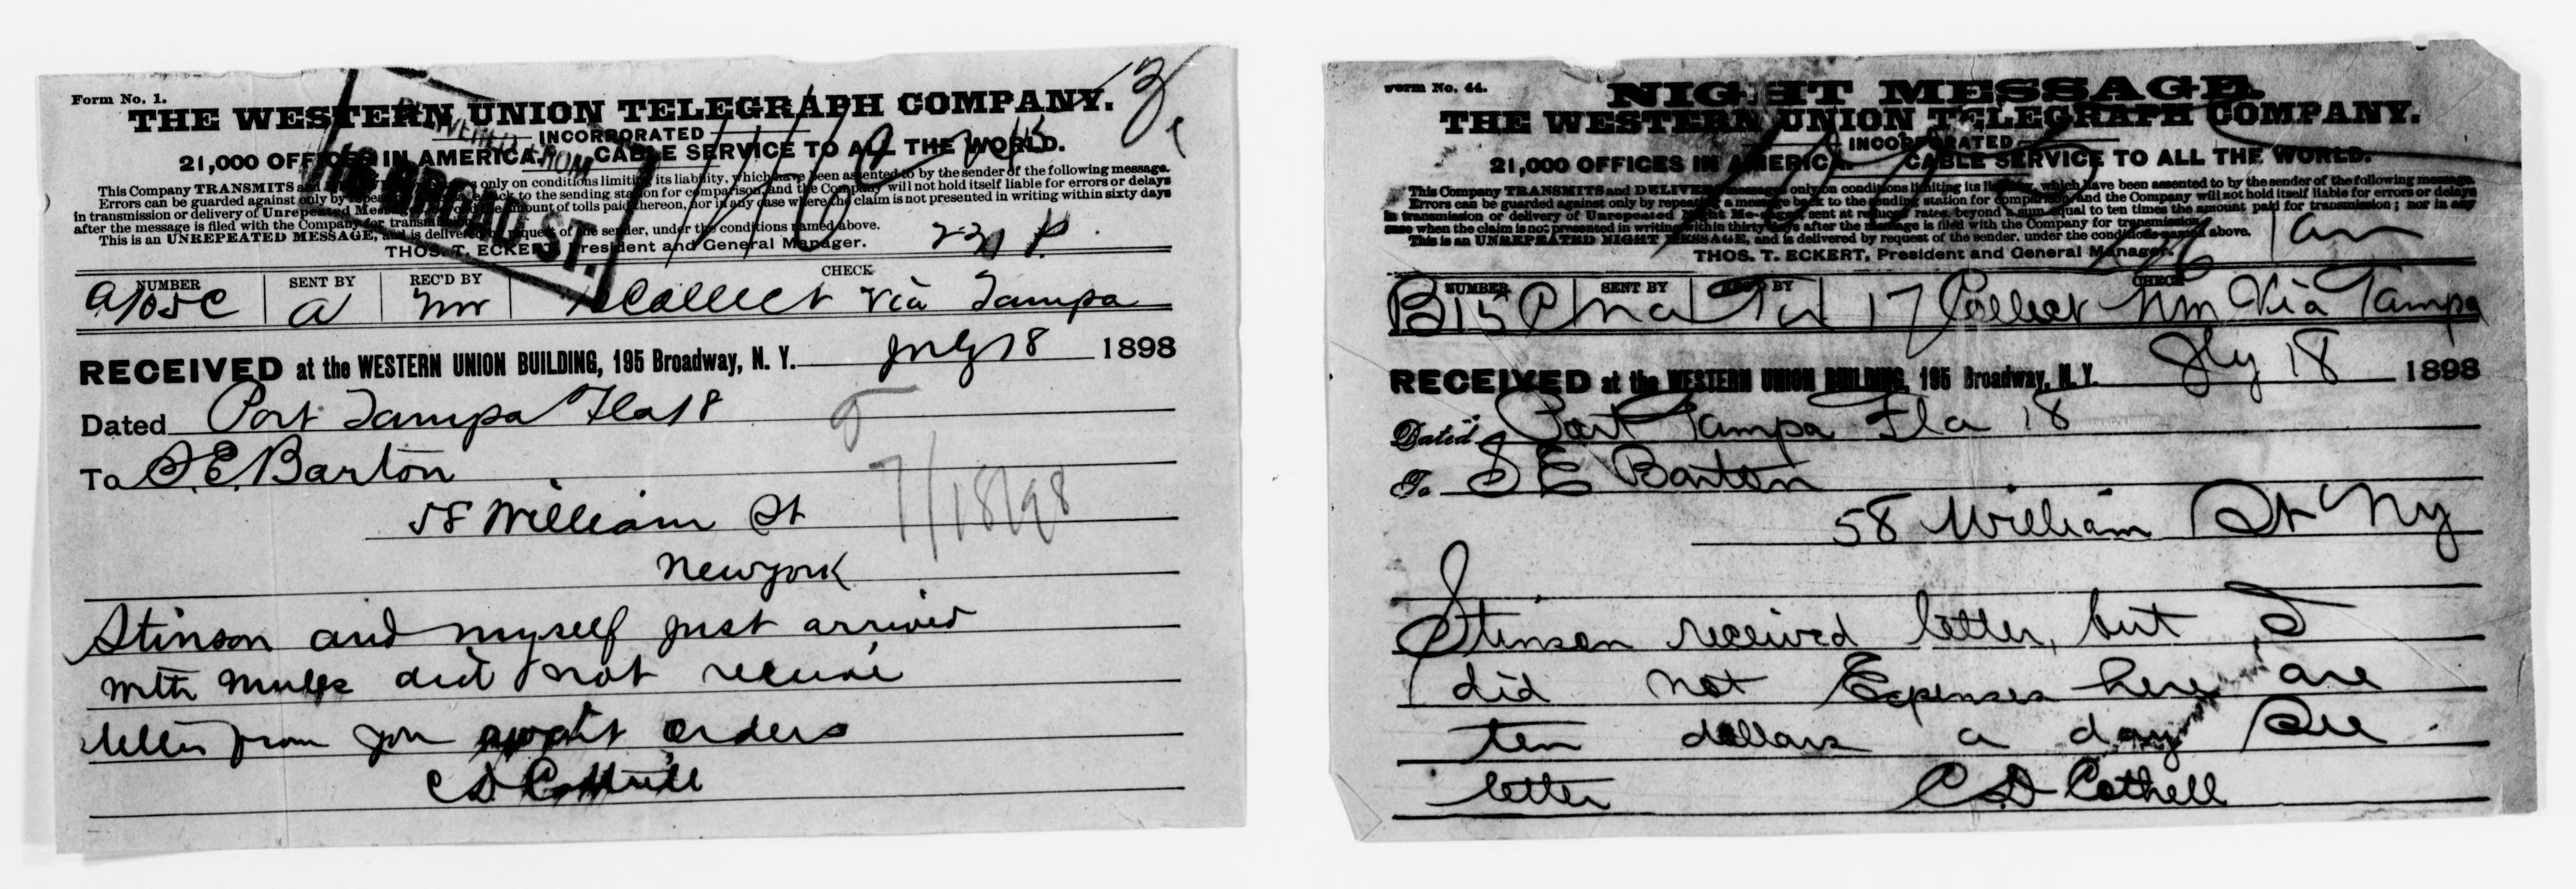 Form No. 1.
THE WESTERN UNION TELEGRAPH COMPANY.
INCORPORATED
21,000 OFFICES IN AMERICA. CABLE SERVICE TO ALL THE WORLD.
This Company TRANSMITS and only on conditions limiting its liability, which have been assented to by the sender of the following message.
Errors can be guarded against only by back to the sending station for comparison, and the Company will not hold itself liable for errors or delays
in transmission or delivery of Unrepeated amount of tolls paid thereon, nor in any case where the claim is not presented in writing within sixty days
after the message is filed with the Company for transmission.
This is an UNREPEATED MESSAGE, and is delivered by request of the sender, under the conditions named above.
THOS. T. ECKERT, President and General Manager.
NUMBER SENT BY REC'D BY CHECK
Collect via Tampa
RECEIVED at the WESTERN UNION BUILDING, 195 Broadway, N. Y. July 18 1898
Dated Port Tampa Fla 18
To S. E. Barton
58 William St
7/18/98
New york
Stinson and myself just arrived
with mules did not receive
letter from you await orders
C D Cottrell
Form No. 44.
NIGHT MESSAGE.
THE WESTERN UNION TELEGRAPH COMPANY.
INCORPORATED
21,000 OFFICES IN AMERICA. CABLE SERVICE TO ALL THE WORLD.
This Company TRANSMITS and DELIVERS messages only on conditions limiting its liability, which have been assented to by the sender of the following message.
Errors can be guarded against only by repeating a message back to the sending station for comparison, and the Company will not hold itself liable for errors or delays
in transmission or delivery of Unrepeated Night Messages, sent at reduced rates, beyond a sum equal to ten times the amount paid for transmission; nor in any
case when the claim is not presented in writing within thirty days after the message is filed with the Company for transmission.
This is an UNREPEATED NIGHT MESSAGE, and is delivered by request of the sender, under the conditions named above.
THOS. T. ECKERT, President and General Manager.
NUMBER SENT BY REC'D BY CHECK
17 Collect Nm Via Tampa
RECEIVED at the WESTERN UNION BUILDING, 195 Broadway, N. Y. Jly 18 1898
Dated Port Tampa Fla 18
To S E Barton
58 William St Ny
Stinson received letter, but I
did not Expenses here are
ten dollars a day See
letter C D Cothell